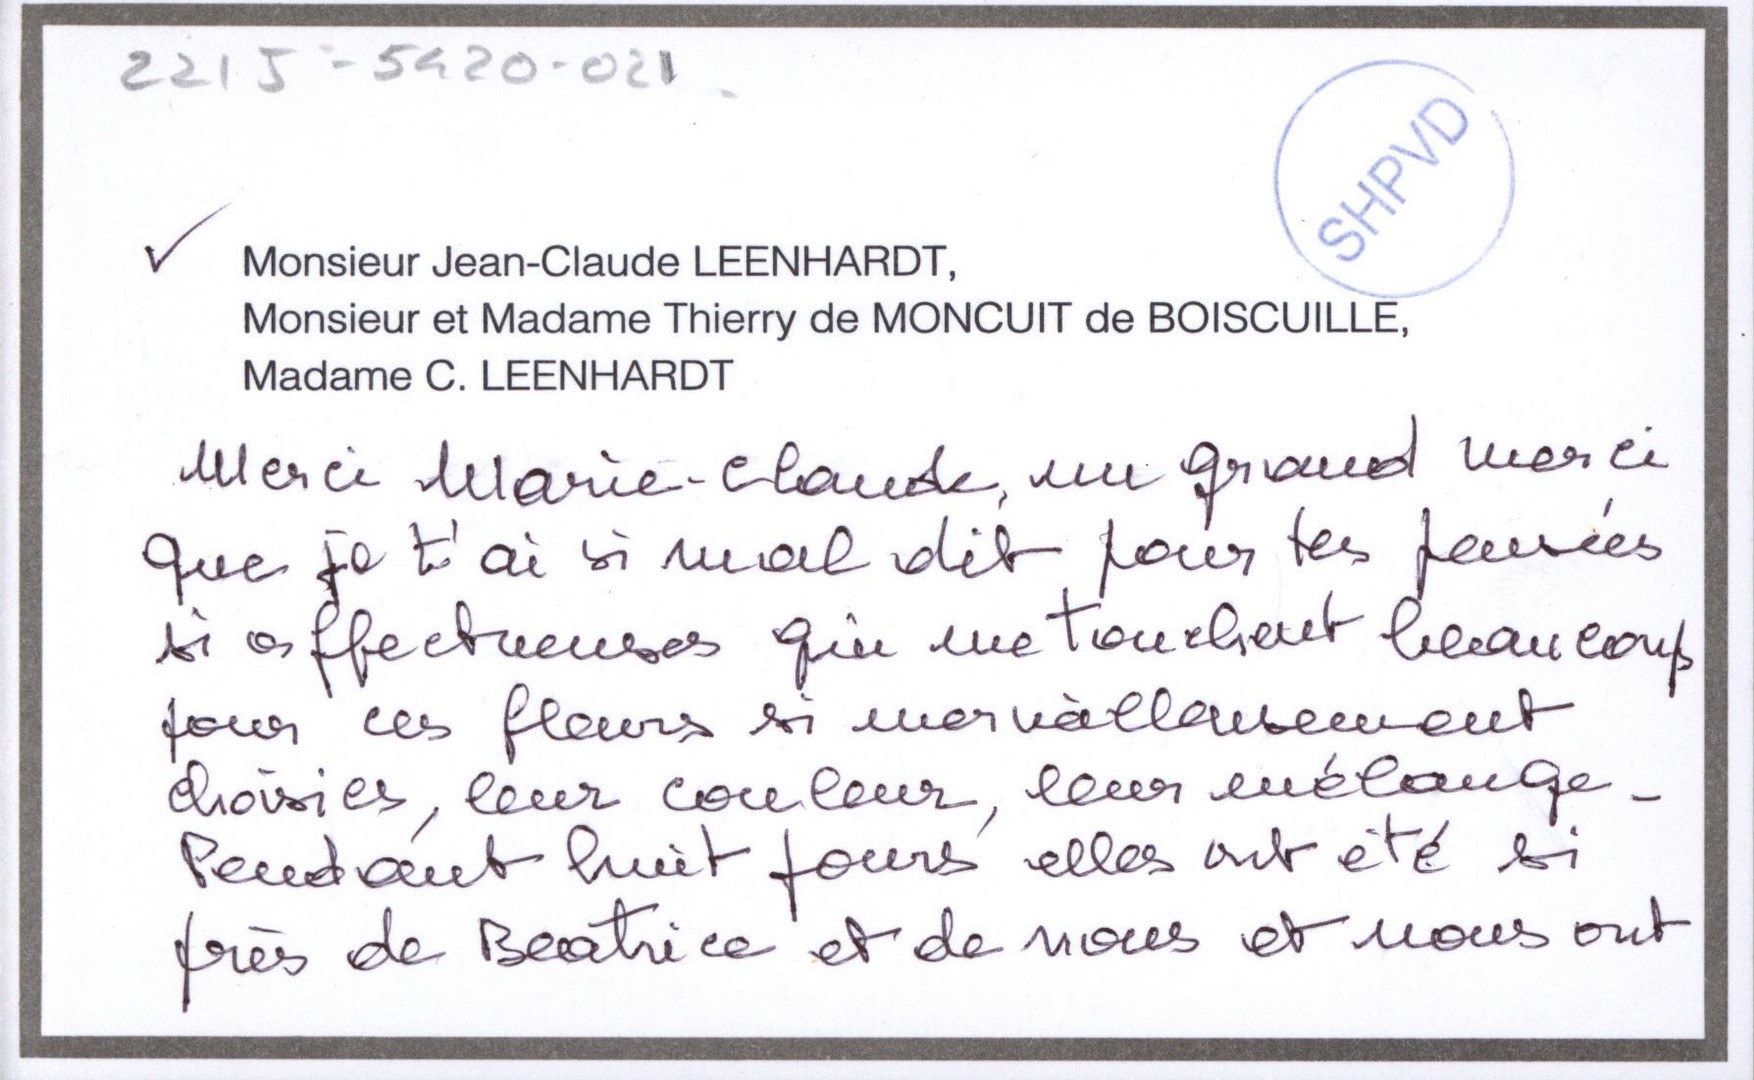 221J - 5420-021
SHPVD
Monsieur Jean-Claude LEENHARDT,
Monsieur et Madame Thierry de MONCUIT de BOISCUILLE,
Madame C. LEENHARDT
Merci Marie-Claude, un grand merci
que je t'ai si mal dit pour tes pensées
si affectueuses qui me touchent beaucoup
pour ces fleurs si merveilleusement
choisies, leur couleur, leur mélange -
Pendant huit jours elles ont été si
près de Beatrice et de nous et nous ont